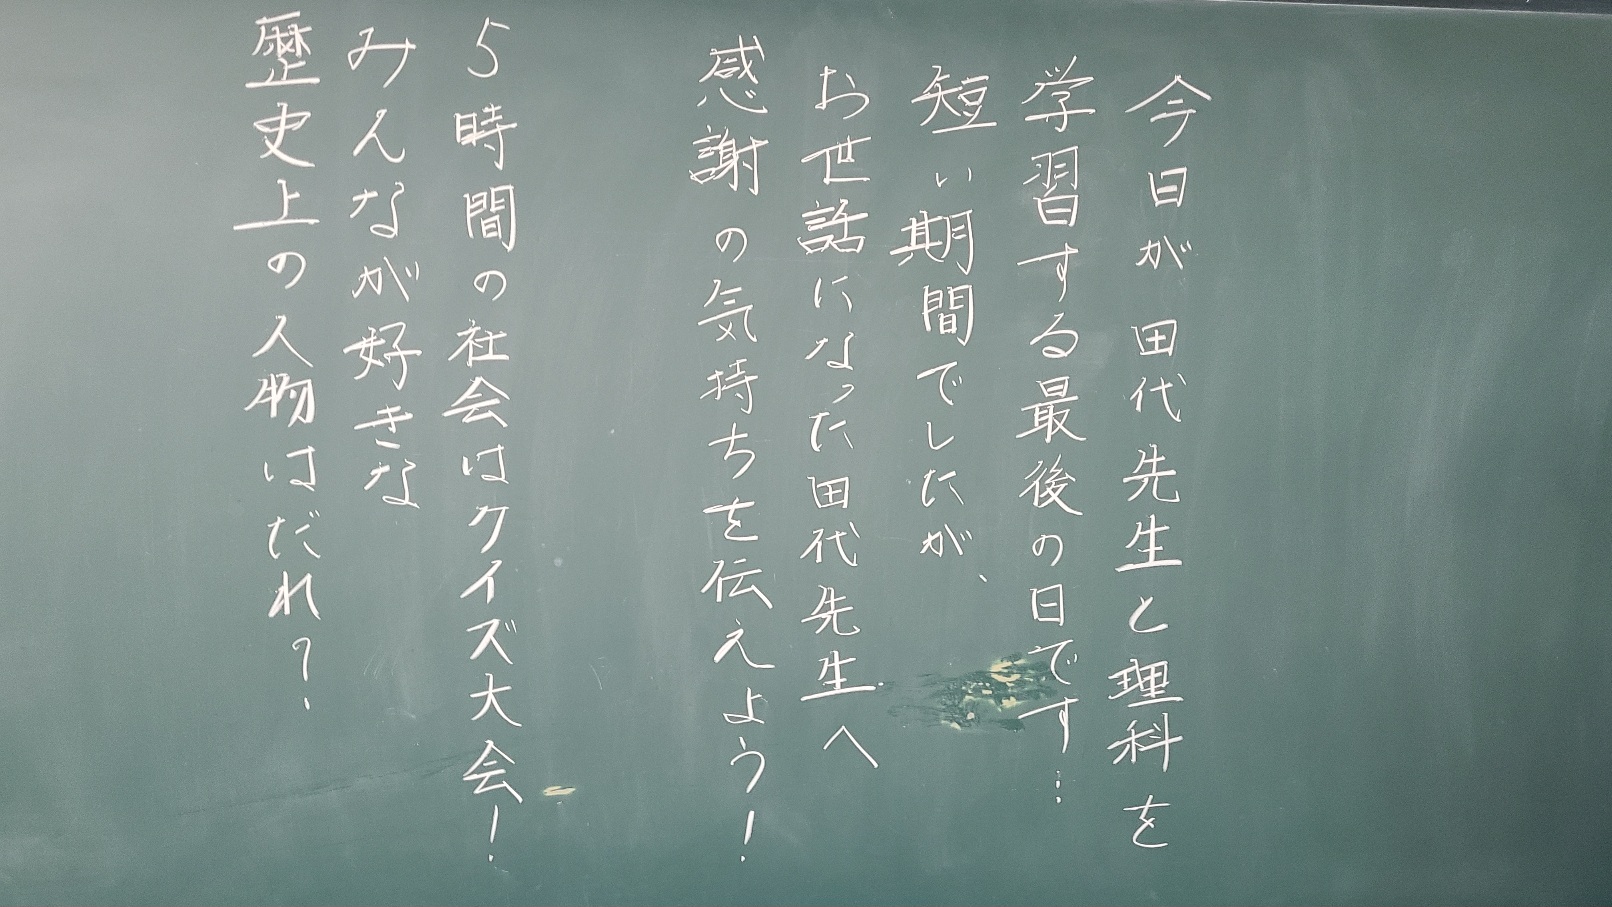 今日が田代先生と理科を
学習する最後の日です…
短い期間でしたが、
お世話になった田代先生へ
感謝の気持ちを伝えよう！
5時間の社会はクイズ大会！
みんなが好きな
歴史上の人物はだれ？